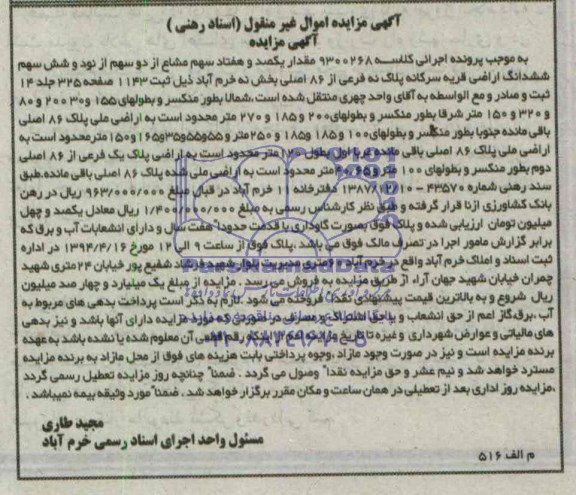 آگهی مزایده اموال غیر منقول (اسناد رهنی)
آگهی مزایده
به موجب پرونده اجرائی کلاســه ۹۳۰۰۲۶۸ مقدار یکصد و هفتاد سهم مشاع از دو سهم از نود و شش سهم
ششدانگ اراضی قریه سرکانه پلاک نه فرعی از ۸۶ اصلی بخش نه خرم آباد ذیل ثبت ۱۱۴۳ صفحه ۳۲۵ جلد ۱۴
ثبت و صادر و مع الواسطه به آقای واحد چهری منتقل شده است.شمالا بطور منکسر و بطولهای ۱۵۵ و ۳۰ و ۲۰۰ و ۸۰
و ۳۲۰ و ۱۵۰ متر شرقا بطور منکسر و بطولهای ۲۰۰ و ۱۸۵ و ۲۷۰ متر محدود است به اراضی ملی پلاک ۸۶ اصلی
باقی مانده جنوبا بطور منکسر و بطولهای ۱۰۰ و ۱۸۵ و ۱۸۵ و ۲۵۰ متر و ۵۵ و ۵۵ و ۳۵ و ۱۶۵ و ۱۵۰ متر محدود است به
اراضی ملی پلاک ۸۶ اصلی باقی مانده غربا اول بطول ۱۲۰ متر محدود است به اراضی پلاک یک فرعی از ۸۶ اصلی
دوم بطور منکسر و بطولهای ۱۰۰ متر و ۶۵ و ۴۰ متر محدود است به اراضی ملی شده پلاک ۸۶ اصلی باقی مانده.طبق
سند رهنی شماره ۴۳۵۷۰ - ۱۳۸۷/۱۲/۱۰ دفترخانه ۱۰ خرم آباد در قبال مبلغ ۹۶۳/۰۰۰/۰۰۰ ریال در رهن
بانک کشاورزی ازنا قرار گرفته و طبق نظر کارشناس رسمی به مبلغ ۱/۴۰۰/۰۰۰/۰۰۰ ریال معادل یکصد و چهل
میلیون تومان ارزیابی شده و پلاک فوق بصورت گاوداری با قدمت حدودا هفت سال و دارای انشعابات آب و برق که
برابر گزارش مامور اجرا در تصرف مالک فوق می باشد .پلاک فوق از ساعت ۹ الی ۱۲ مورخ ۱۳۹۴/۴/۱۶ در اداره
ثبت اسناد و املاک خرم آباد واقع در خرم آباد ۶۰متری مدیریت بلوار شهید فرشاد شفیع پور خیابان ۲۴متری شهید
چمران خیابان شهید جهان آراء از طریق مزایده به فروش می رسد . مزایده از مبلغ یک میلیارد و چهار صد میلیون
ریال شروع و به بالاترین قیمت پیشنهادی نقداً فروخته می شود .لازم به ذکر است پرداخت بدهی های مربوط به
آب ،برق،گاز اعم از حق انشعاب و یا حق اشتراک و مصارف در صورتی که مورد مزایده دارای آنها باشد و نیز بدهی
های مالیاتی و عوارض شهرداری و غیره تا تاریخ مزایده اعم از اینکه رقم قطعی آن معلوم شده یا نشده باشد به عهده
برنده مزایده است و نیز در صورت وجود مازاد ،وجوه پرداختی بابت هزینه های فوق از محل مازاد به برنده مزایده
مسترد خواهد شد و نیم عشر و حق مزایده نقدا" وصول می گردد . ضمنا" چنانچه روز مزایده تعطیل رسمی گردد
،مزایده روز اداری بعد از تعطیلی در همان ساعت و مکان مقرر برگزار خواهد شد . ضمنا" مورد وثیقه بیمه نمیباشد .
مجید طاری
مسئول واحد اجرای اسناد رسمی خرم آباد
م الف ۵۱۶